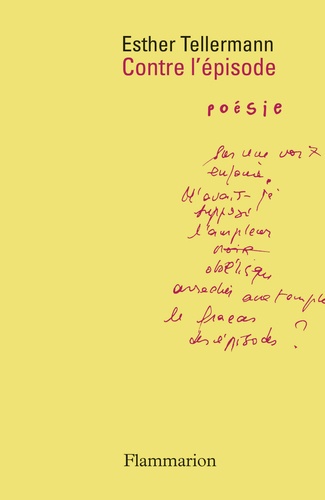 Esther Tellermann
Contre l'épisode
poésie
Sur une voix
enfouie,
N'avait-je
supposé
l'ampleur
noire
oblique
arrachée aux temples
le fracas
des épisodes ?
Flammarion